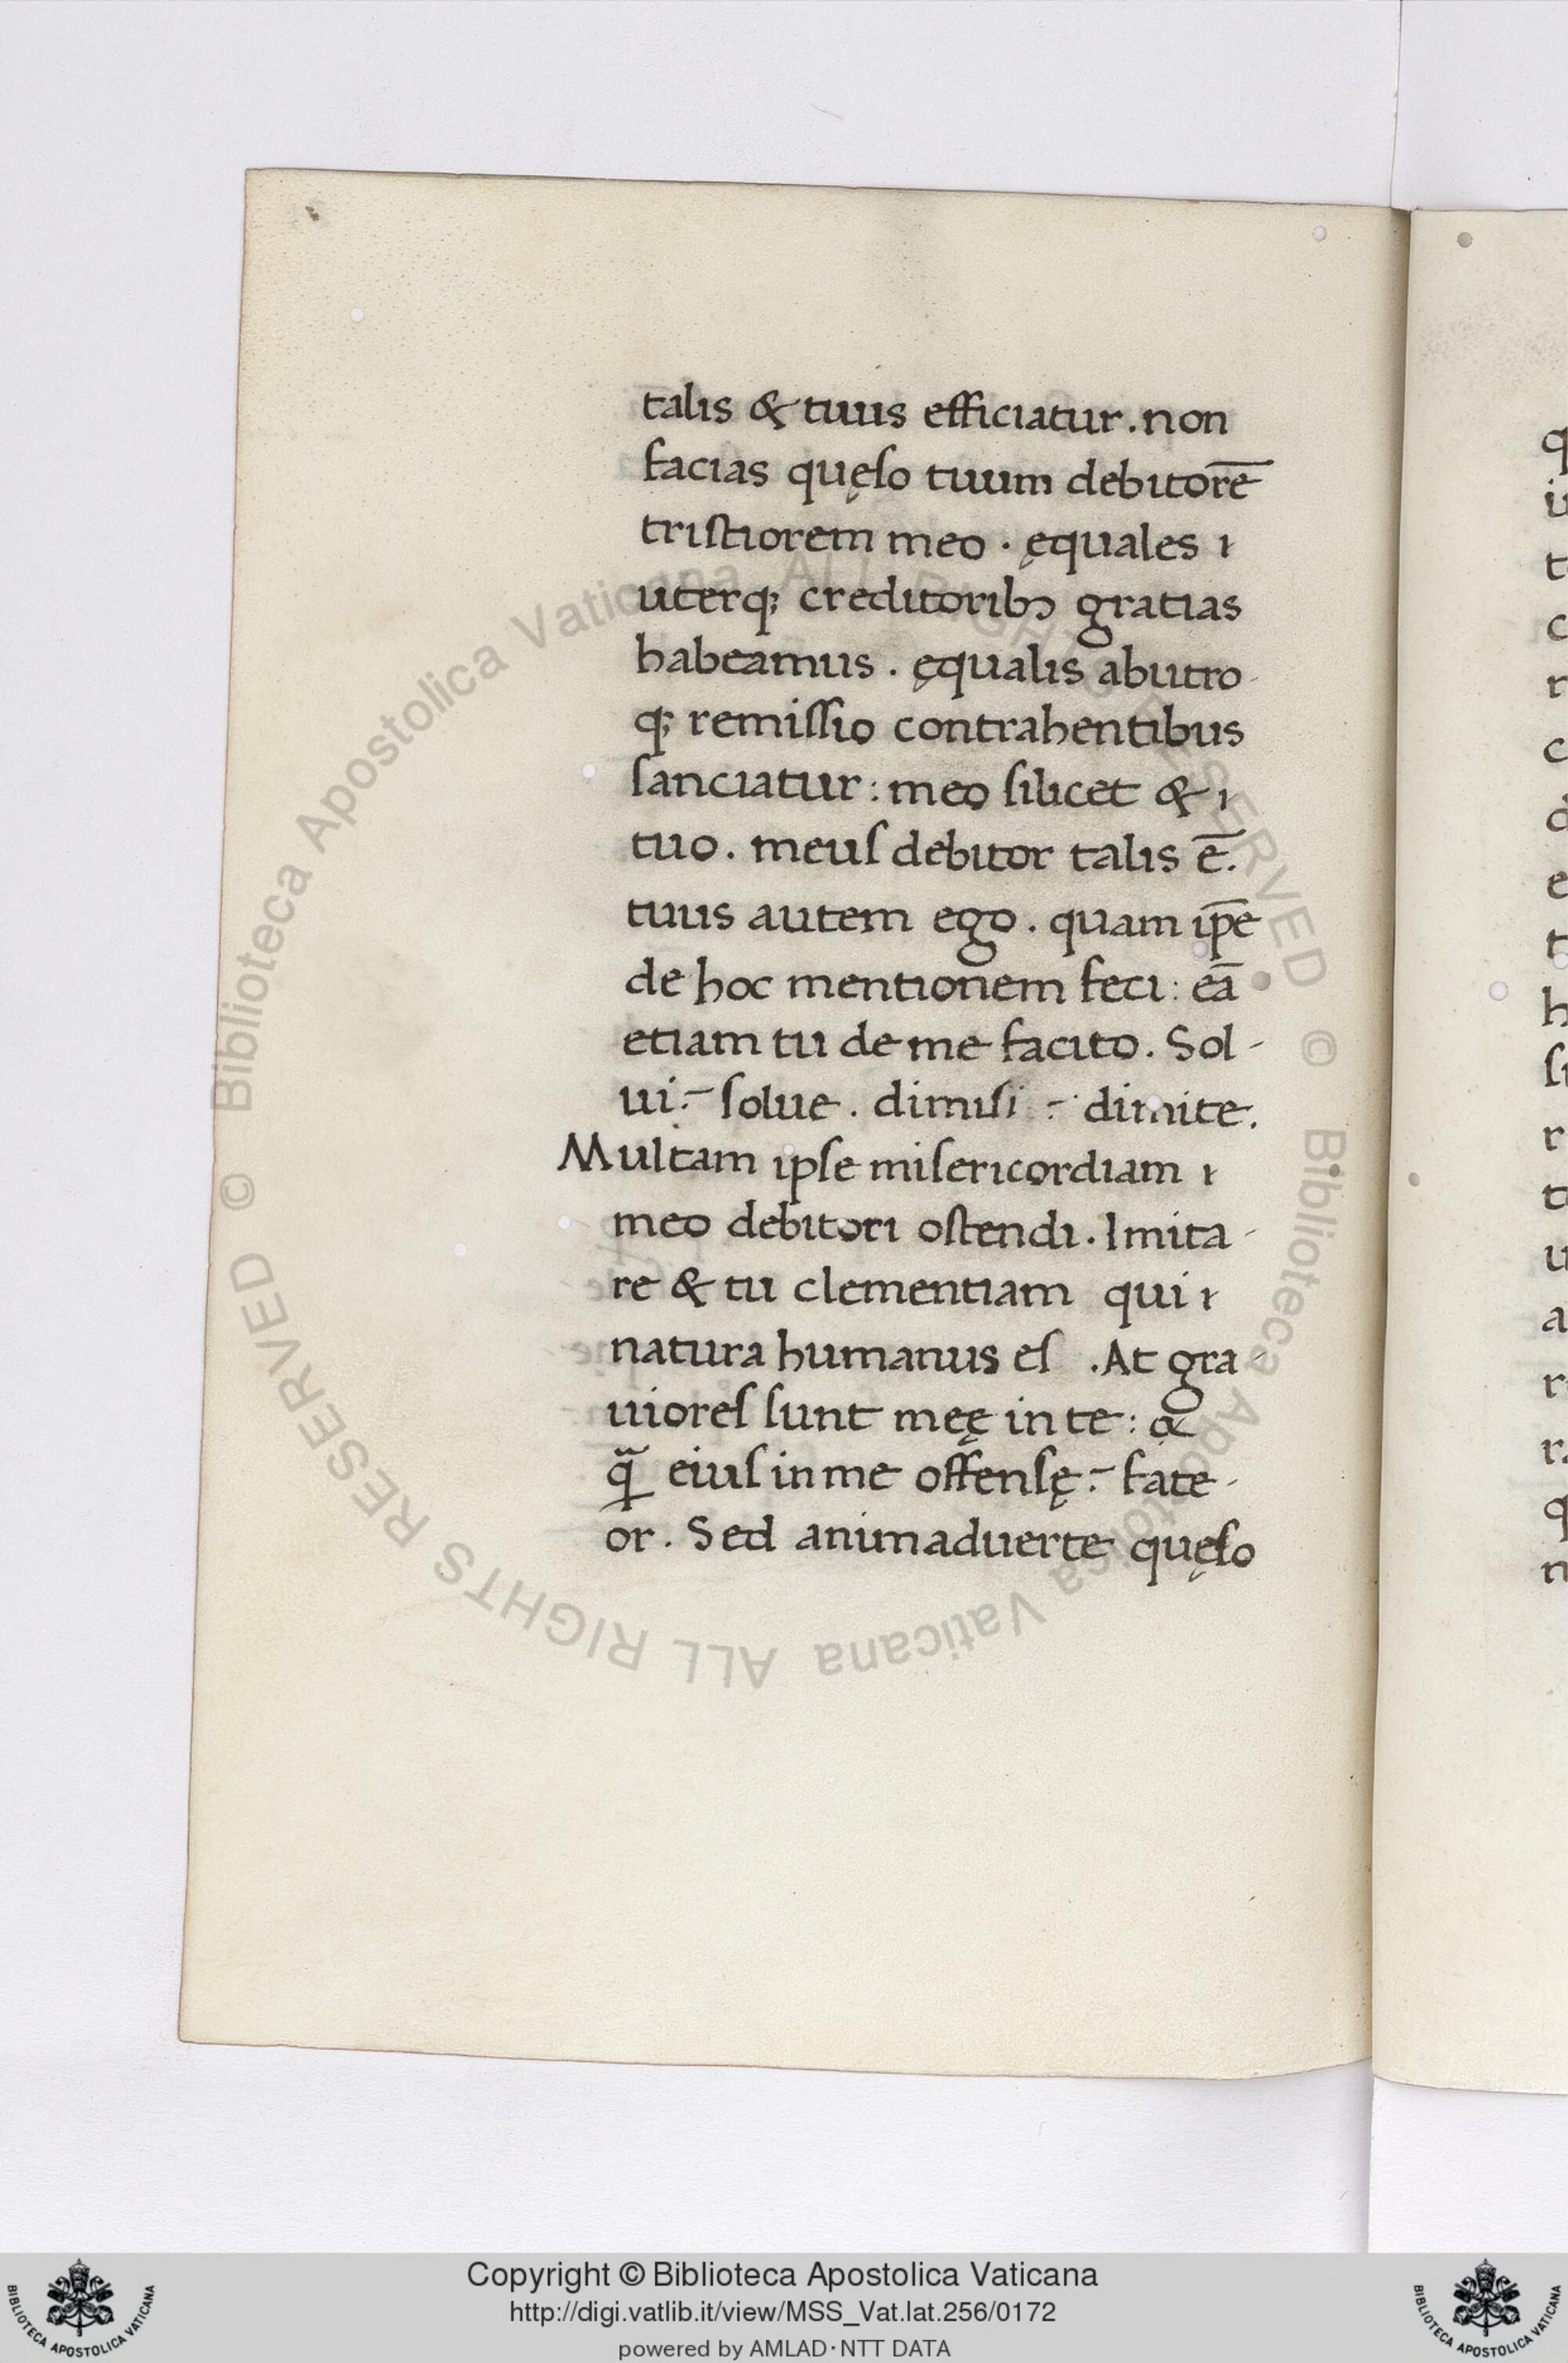 talis & tuus efficiatur. non
facias quęſo tuum debitorē
triſtiorem meo . ęquales ı
uterq; creditoribꝫ gratias
habeamus . ęqualis abutro-
q; remiſſio contrahentibus
ſanciatur : meo ſilicet & ı
tuo . meuſ debitor talis ē.
tuus autem ego . quam ip̄e
de hoc mentionem feci : eā
etiam tu de me facito . Sol-
ui:- ſolue . dimiſi :- dimite.
Multam ipſe miſericordiam ı
meo debitori oſtendi . Imita-
re & tu clementiam qui ı
natura humanus eſ . At gra-
uioreſ ſunt meę in te : &
quā eiuſ in me offenſę :- fate-
or . Sed animaduerte quęſo
Copyright © Biblioteca Apostolica Vaticana
http://digi.vatlib.it/view/MSS_Vat.lat.256/0172
powered by AMLAD·NTT DATA
BIBLIOTECA APOSTOLICA VATICANA
BIBLIOTECA APOSTOLICA VATICANA
© Biblioteca Apostolica Vaticana ALL RIGHTS RESERVED © Biblioteca Apostolica Vaticana ALL RIGHTS RESERVED